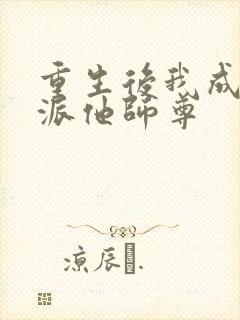 重生後我成
派他師尊
涼辰.